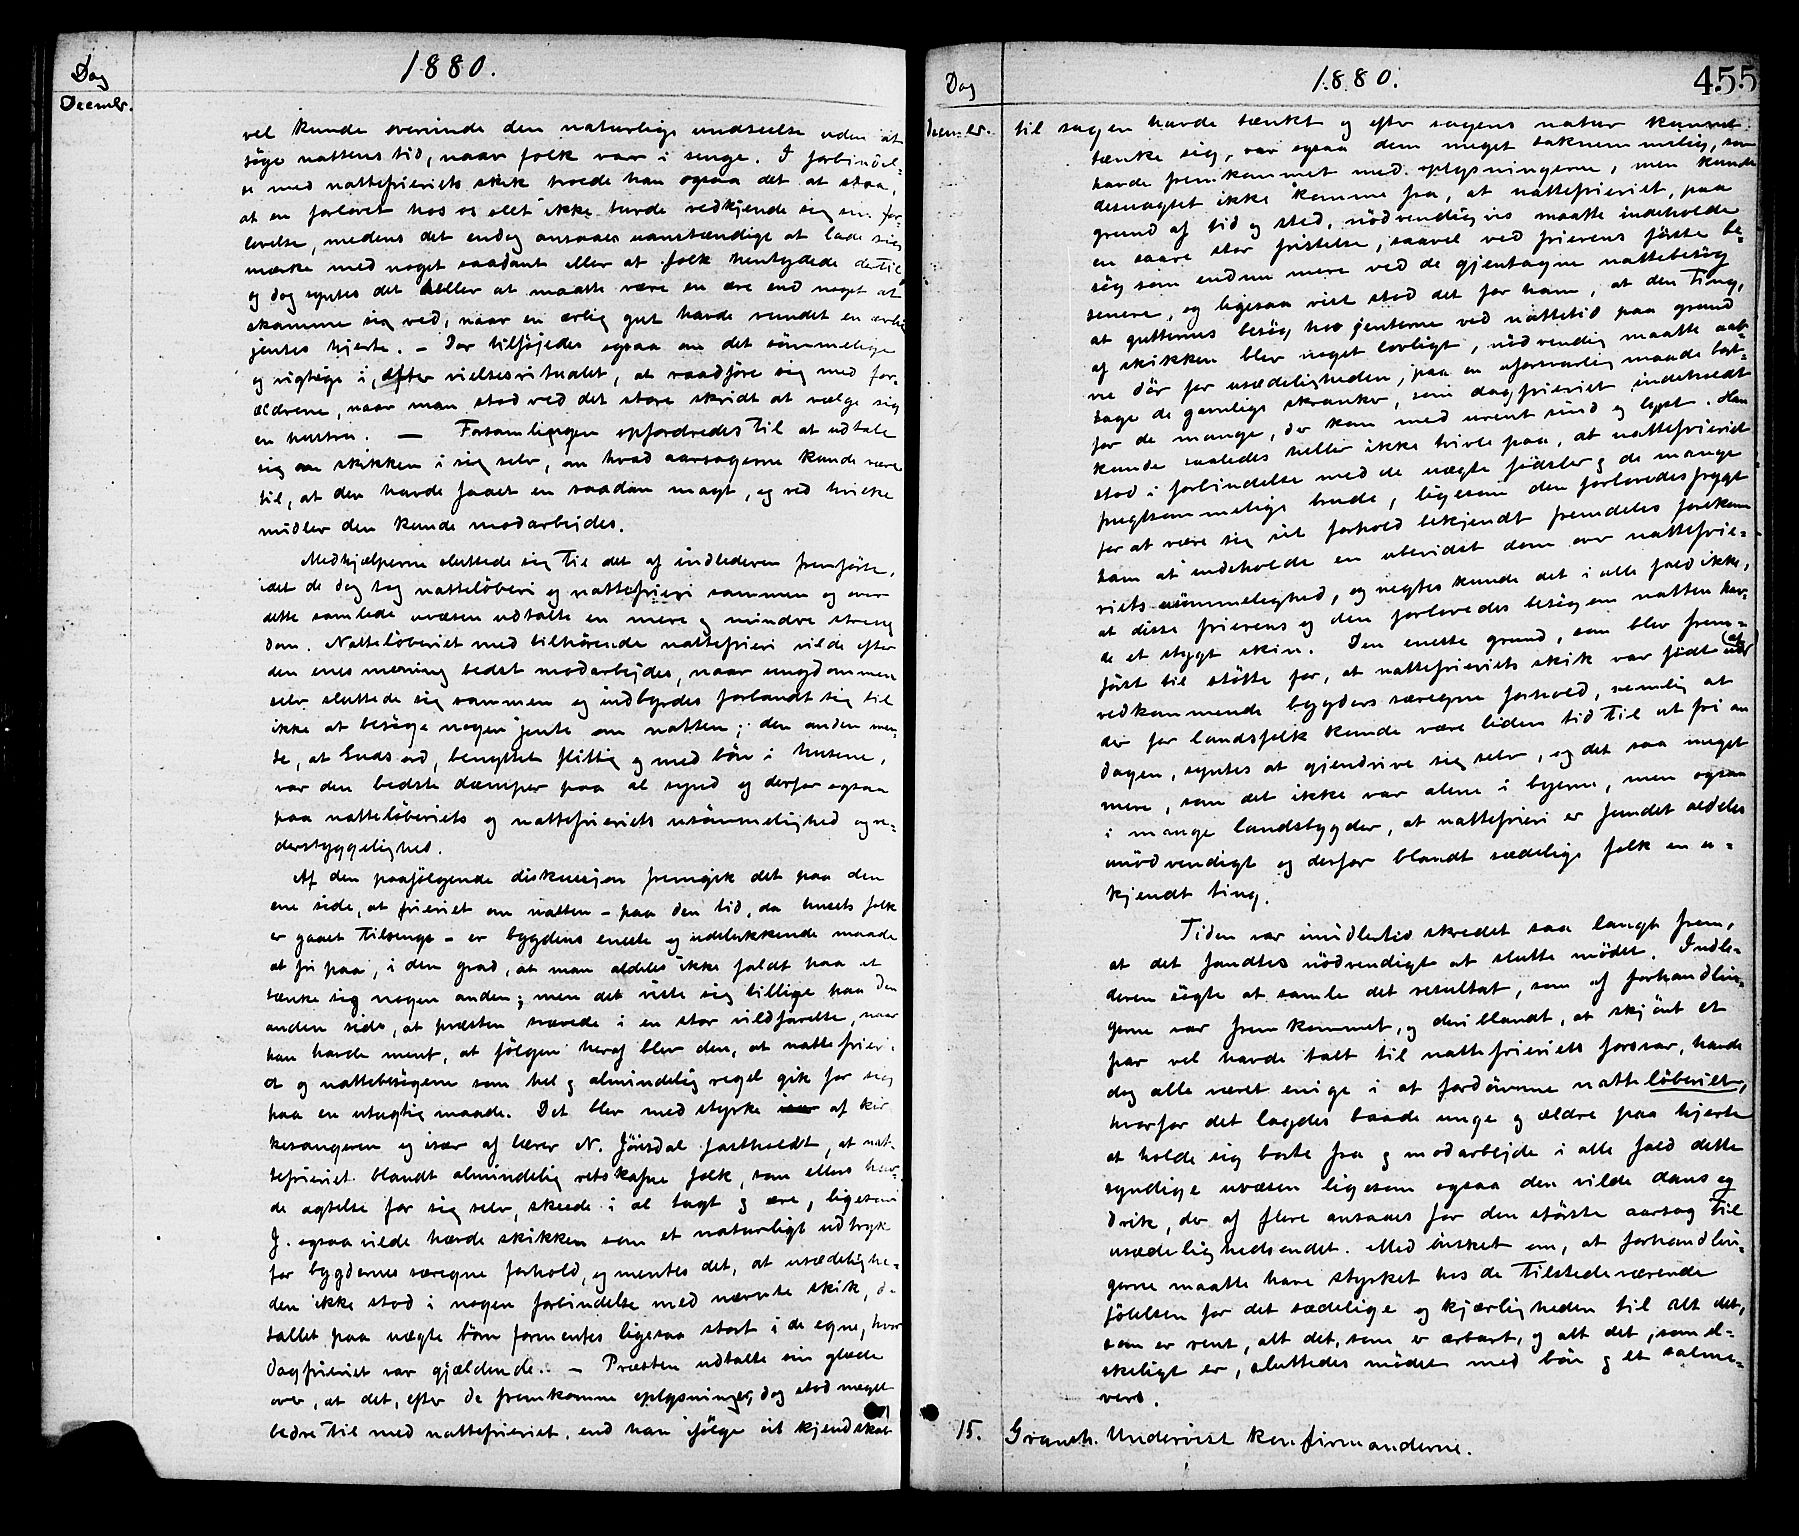 Dag
1880.
Decembr.
vel kunde overvinde den naturlige undseelse uden at
søge nattens tid, naar folk var i senge. I forbindel-
se med nattefrieriets skik troede han ogsaa det at staa,
at en forlovet hos os slet ikke turde vedkjende sig sin for-
lovelse, medens det endog ansaaes uanstændige at lade sig
mærke med noget saadant eller at folk hentydede dertil
og dog syntes det heller at maatte være en ære end noget at
skamme sig ved, naar en ærlig gut havde vundet en ærlig
jentes hjerte. – Der tilføjedes ogsaa om det sømmelige
og vigtige i, efter vielsesritualet, at raadføre sig med for-
ældrene, naar man stod ved det store skridt at vælge sig
en hustru. – Forsamlingen opfordredes til at udtale
sig om skikken i sig selv, om hvad aarsagerne kunde være
til, at den havde faaet en saadan magt, og ved hvilke
midler den kunde modarbejdes.
Medhjælperne sluttede sig til det af indlederen fremførte,
idet de dog tog natteløberi og nattefrieri sammen og over
dette samlede uvæsen udtalte en mere og mindre streng
dom. Natteløberiet med tilhørende nattefrieri vilde efter
den enes mening bedst modarbejdes, naar ungdommen
selv sluttede sig sammen og indbyrdes forbandt sig til
ikke at besøge nogen jente om natten; den anden men-
te, at Guds ord, benyttet flittig og med bøn i husene,
var den bedste dæmper paa al synd og derfor ogsaa
paa natteløberiets og nattefrieriets usømmelighed og ve-
derstyggelighed.
Af den paafølgende diskussjon fremgik det paa den
ene side, at frieriet om natten – paa den tid, da husets folk
er gaaet tilsengs – er bygdens eneste og udelukkende maade
at fri paa, i den grad, at man aldeles ikke faldt paa at
tænke sig nogen anden; men det viste sig tillige paa den
anden side, at præsten svævede i en stor vildfarelse, naar
han havde ment, at følgen heraf blev den, at nattefrieri-
et og nattebesøgene som hel og almindelig regel gik for sig
paa en utugtig maade. Det blev med styrke af kir-
kesangeren og især af lærer N. Jørisdal fastholdt, at nat-
tefrieriet blandt almindelig retskafne folk, som ellers hav-
de agtelse for sig selv, skeede i al tugt og ære, ligesom
J. ogsaa vilde hævde skikken som et naturligt udtryk
for bygdernes særegne forhold, og mentes det, at usædelighe-
den ikke stod i nogen forbindelse med nævnte skik, da
tallet paa uægte børn formentes ligesaa stort i de egne, hvor
dagfrieriet var gjældende. – Præsten udtalte sin glæde
over, at det, efter de fremkomne oplysninger, dog stod meget
bedre til med nattefrieriet, end han ifølge sit kjendskab
Dag
1880.
455
Decembr.
til sagen havde tænkt og efter sagens natur kunnet
tænke sig, var ogsaa dem meget taknemmelig, som
havde fremkommet med oplysningerne, men kunde
desuagtet ikke komme fra, at nattefrieriet, paa
grund af tid og sted, nødvendigvis maatte indeholde
en saare stor fristelse, saavel ved frierens første be-
søg som endnu mere ved de gjentagne nattebesøg
senere, og ligesaa vist stod det for ham, at den ting,
at gutternes besøg hos jenterne ved nattetid paa grund
af skikken blev noget lovligt, nødvendig maatte aab-
ne dør for usædeligheden, paa en uforsvarlig maade bort-
tage de gavnlige skranker, som dagfrieriet indeholdt
for de mange, der kom med urent sind og lyst. Han
kunde saaledes heller ikke tvivle paa, at nattefrieriet
stod i forbindelse med de uægte fødsler og de mange
frugtsommelige brude, ligesom den forlovedes frygt
for at være sig sit forhold bekjendt fremdeles forekom
ham at indeholde en ubevidst dom over nattefrie-
riets usømmelighed, og negtes kunde det i alle fald ikke,
at disse frierens og den forlovedes besøg om natten hav-
de et stygt skin. Den eneste grund, som blev frem-
ført til støtte for, at nattefrieriets skik var født af
vedkommende bygders særegne forhold, nemlig at
der for landsfolk kunde være liden tid til at fri om
dagen, syntes at gjendrive sig selv, og det saa meget
mere, som det ikke var alene i byerne, men ogsaa
i mange landsbygder, at nattefrieri er fundet aldeles
unødvendigt og derfor blandt sædelige folk en u-
kjendt ting.
Tiden var imidlertid skredet saa langt frem,
at det fandtes nødvendigt at slutte mødet. Indle-
deren søgte at samle det resultat, som af forhandlin-
gerne var fremkommet, og deriblandt, at skjønt et
par vel havde talt til nattefrieriets forsvar, havde
dog alle været enige i at fordømme natteløberiet,
hvorfor det lagdes baade unge og ældre paa hjerte
at holde sig borte fra og modarbejde i alle fald dette
syndige uvæsen ligesom ogsaa den vilde dans og
drik, der af flere ansaaes for den største aarsag til
usædelighedsondet. Med ønsket om, at forhandlin-
gerne maatte have styrket hos de tilstedeværende
følelsen for det sædelige og kjærligheden til alt det,
som er rent, alt det, som er ærbart, og alt det, som el-
skeligt er, sluttedes mødet med bøn og et salme-
vers.
15. Gransh. Undervist konfirmanderne.